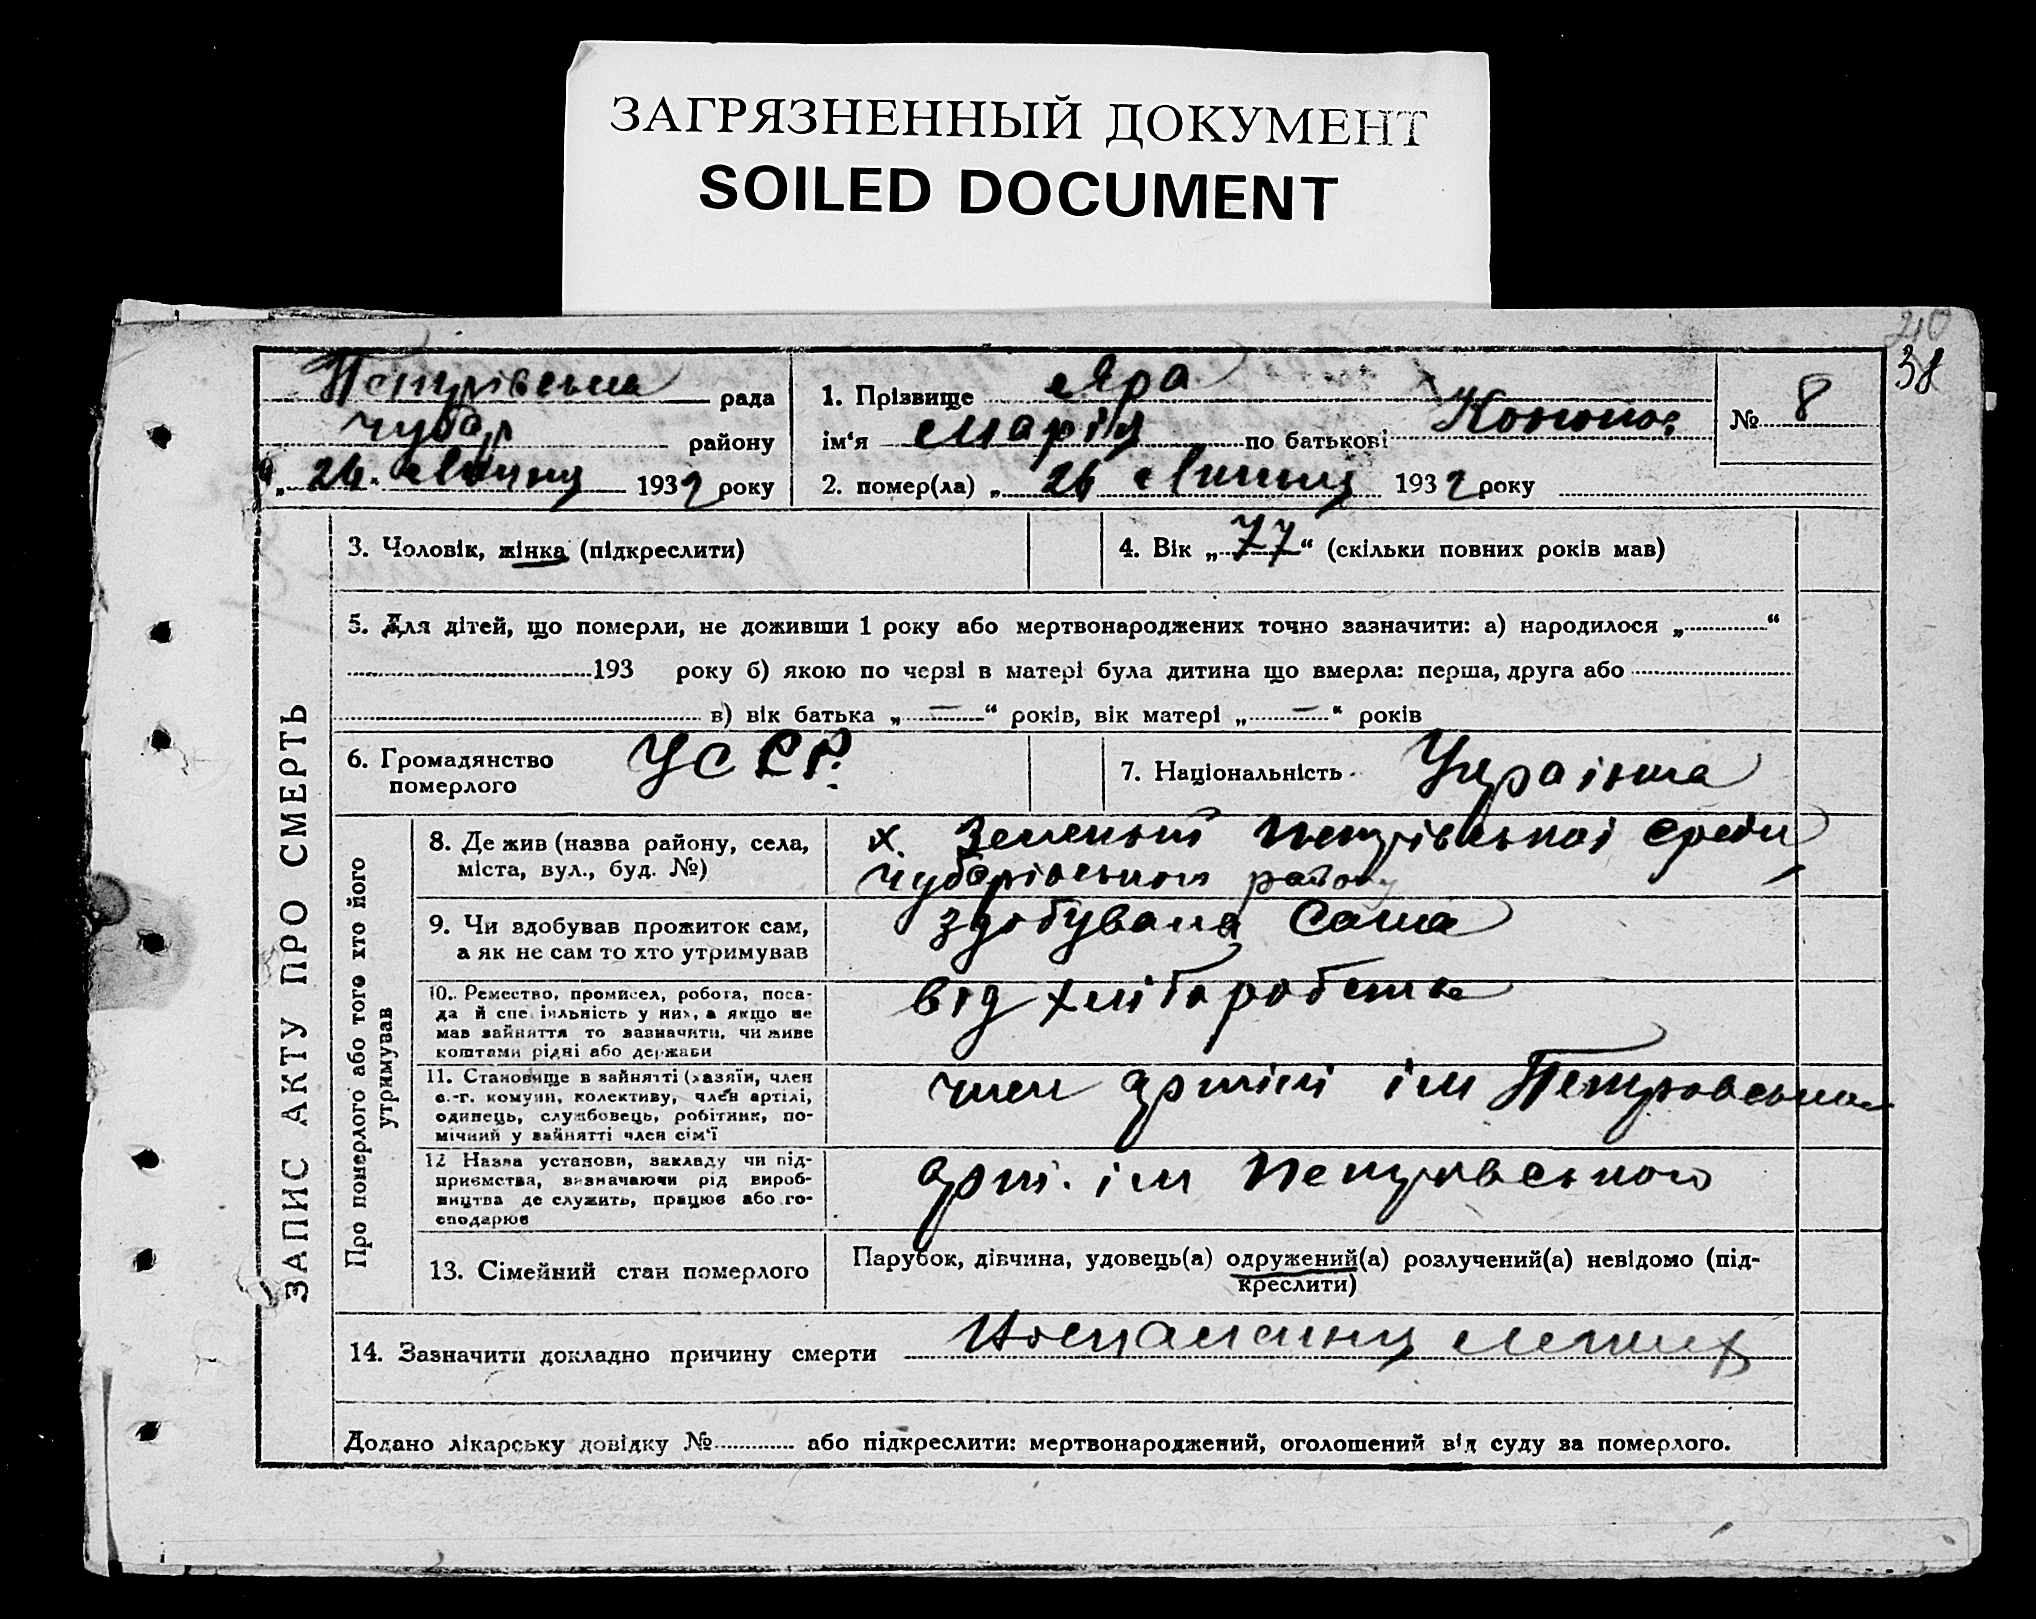 ЗАГРЯЗНЕННЫЙ ДОКУМЕНТ
SOILED DOCUMENT
210
38
Петрівська рада
Чубар району
26. Липня 1932 року
1. Прізвище Яра
ім‘я Марія по батькові Конон.
№ 8
2. помер(ла) „ 26 Липня 1932 року
ЗАПИС АКТУ ПРО СМЕРТЬ
3. Чоловік, жінка (підкреслити)
4. Вік „77“ (скільки повних років мав)
5. Для дітей, що померли, не доживши 1 року або мертвонароджених точно зазначити: а) народилося „ “
193 року б) якою по черзі в матері була дитина що вмерла: перша, друга або
в) вік батька „ — “ років, вік матері „ — “ років
6. Громадянство померлого УССР.
7. Національність Українка
Про померлого або того хто його утримував
8. Де жив (назва району, села, міста, вул., буд. №)
х. Зелений Петрівської сради
Чубарівського району
9. Чи вдобував прожиток сам, а як не сам то хто утримував
здобувала сама
10. Ремество, промисел, робота, поса-
да й спеціяльність у них, а якщо не
мав зайняття то зазначити, чи живе
коштами рідні або держави
від хліборобства
11. Становище в зайнятті (хазяїн, член
с.-г. комуни, колективу, член артілі,
одинець, службовець, робітник, по-
мічний у зайнятті член сім‘ї
член артілі ім Петровського
12 Назва установи, закладу чи під-
приємства, визначаючи рід вироб-
ництва де служить, працює або го-
сподарює
арт. ім Петровського
13. Сімейний стан померлого
Парубок, дівчина, удовець(а) одружений(а) розлучений(а) невідомо (під-
креслити)
14. Зазначити докладно причину смерти легких
Додано лікарську довідку № або підкреслити: мертвонароджений, оголошений від суду за померлого.